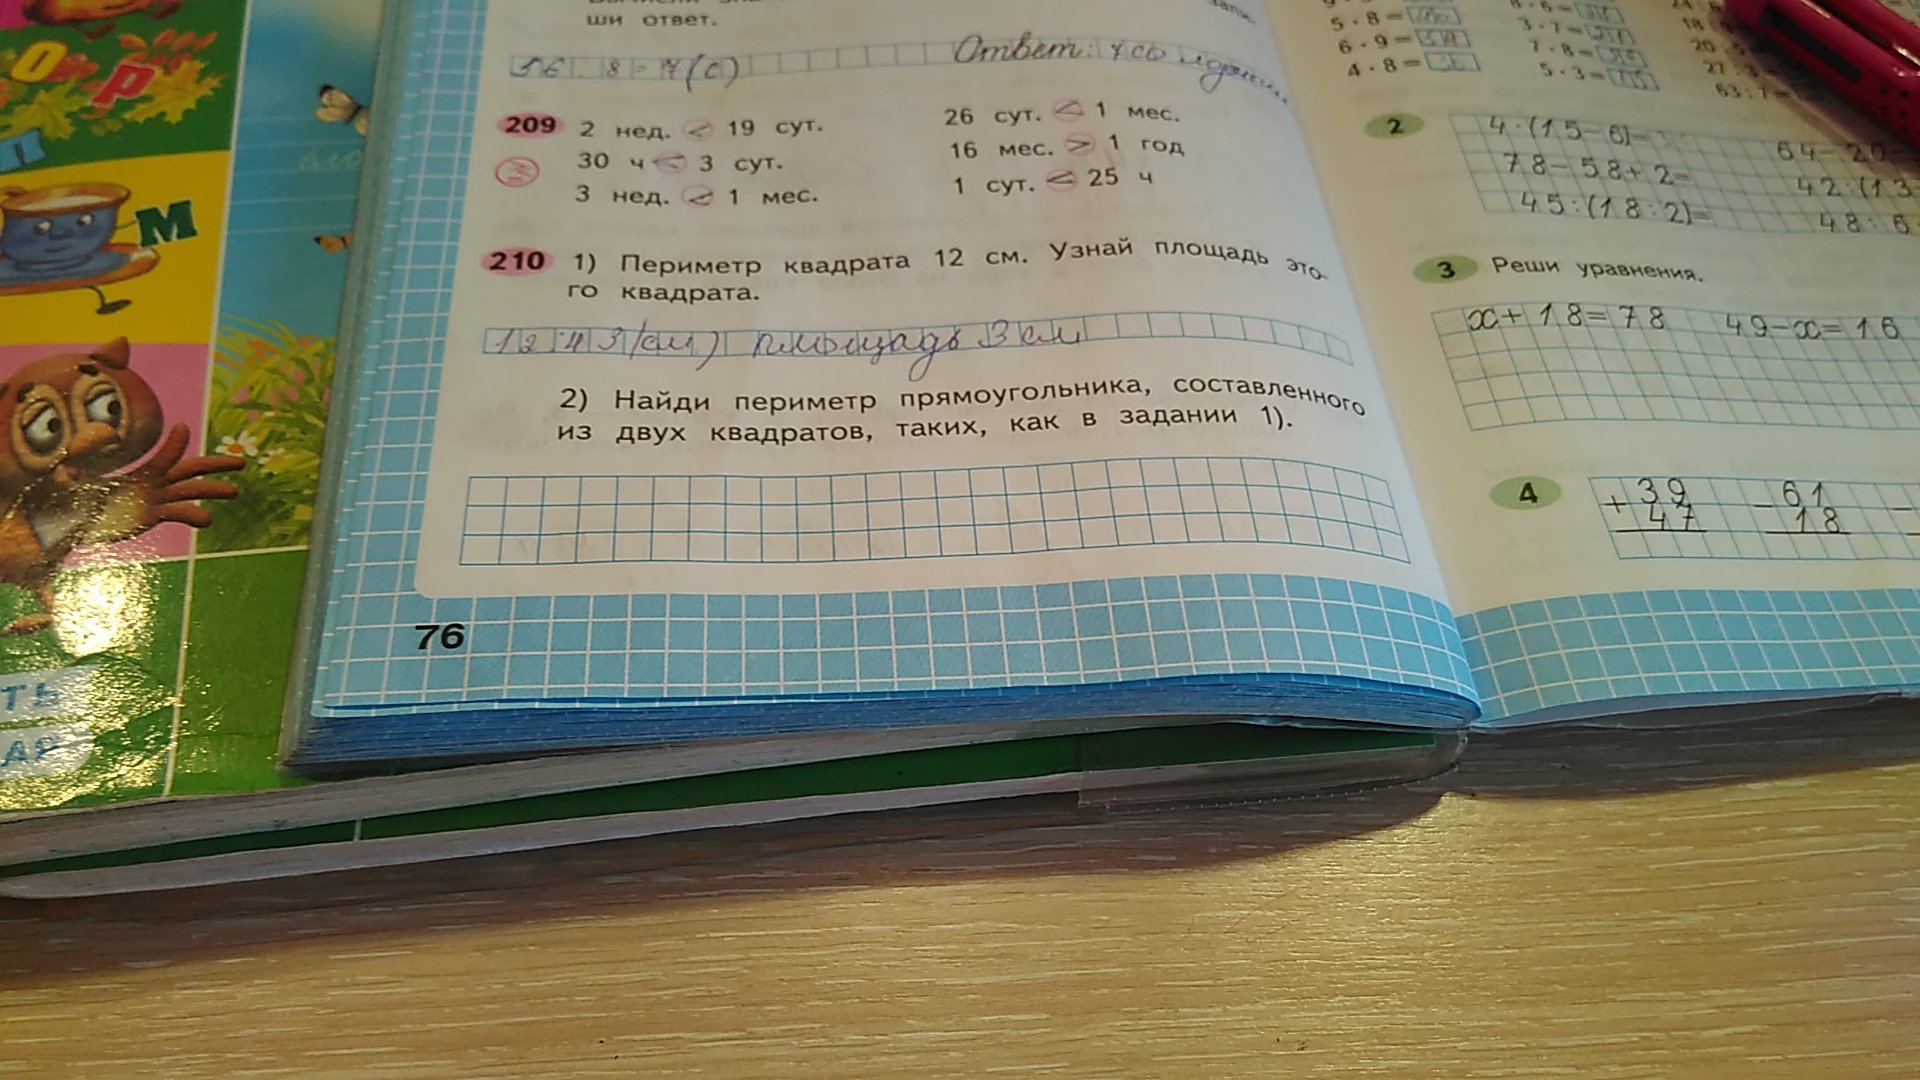 ши ответ.
56 : 8 = 7 (с)
Ответ: 7
209 2 нед. < 19 сут.
26 сут. < 1 мес.
30 ч < 3 сут.
16 мес. > 1 год
3 нед. < 1 мес.
1 сут. < 25 ч
210 1) Периметр квадрата 12 см. Узнай площадь это-
го квадрата.
12 : 4 3 (см) площадь 3 см
2) Найди периметр прямоугольника, составленного
из двух квадратов, таких, как в задании 1).
76
5 · 8 =
6 · 9 =
4 · 8 =
8 · 6 =
3 · 7 =
7 · 8 =
5 · 3 =
2
4 · (15 − 6) =
78 − 58 + 2 =
45 : (18 : 2) =
64 − 20
42 : (13
48 : 6
3 Реши уравнения.
x + 18 = 78
49 − x = 16
4
+ 39
47
− 61
18
О
Р
М
ТЬ